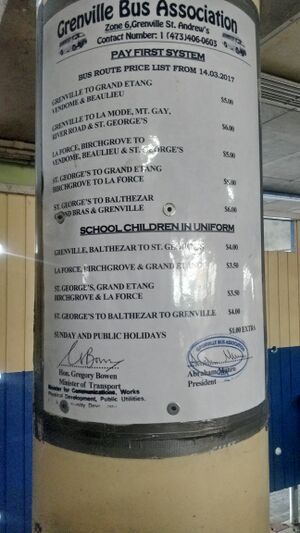 Grenville Bus Association
Zone 6,Grenville St. Andrew's
Contact Number: 1 (473)406-0603
PAY FIRST SYSTEM
BUS ROUTE PRICE LIST FROM 14.03.2017
GRENVILLE TO GRAND ETANG
VENDOME & BEAULIEU $5.00
GRENVILLE TO LA MODE, MT. GAY,
RIVER ROAD & ST. GEORGE'S $6.00
LA FORCE, BIRCHGROVE TO
VENDOME, BEAULIEU & ST. GEORGE'S $5.00
ST. GEORGE'S TO GRAND ETANG
BIRCHGROVE TO LA FORCE $5.00
ST. GEORGE'S TO BALTHEZAR
BRAS & GRENVILLE $6.00
SCHOOL CHILDREN IN UNIFORM
GRENVILLE, BALTHEZAR TO ST. GEORGE'S $4.00
LA FORCE, BIRCHGROVE & GRAND ETANG $3.50
ST. GEORGE'S, GRAND ETANG
BIRCHGROVE & LA FORCE $3.50
ST. GEORGE'S TO BALTHEZAR TO GRENVILLE $4.00
SUNDAY AND PUBLIC HOLIDAYS $1.00 EXTRA
GRENVILLE BUS ASSOCIATION
Hon. Gregory Bowen
Minister of Transport
Minister for Communications, Works
Physical Development, Public Utilities.
Abraham
President